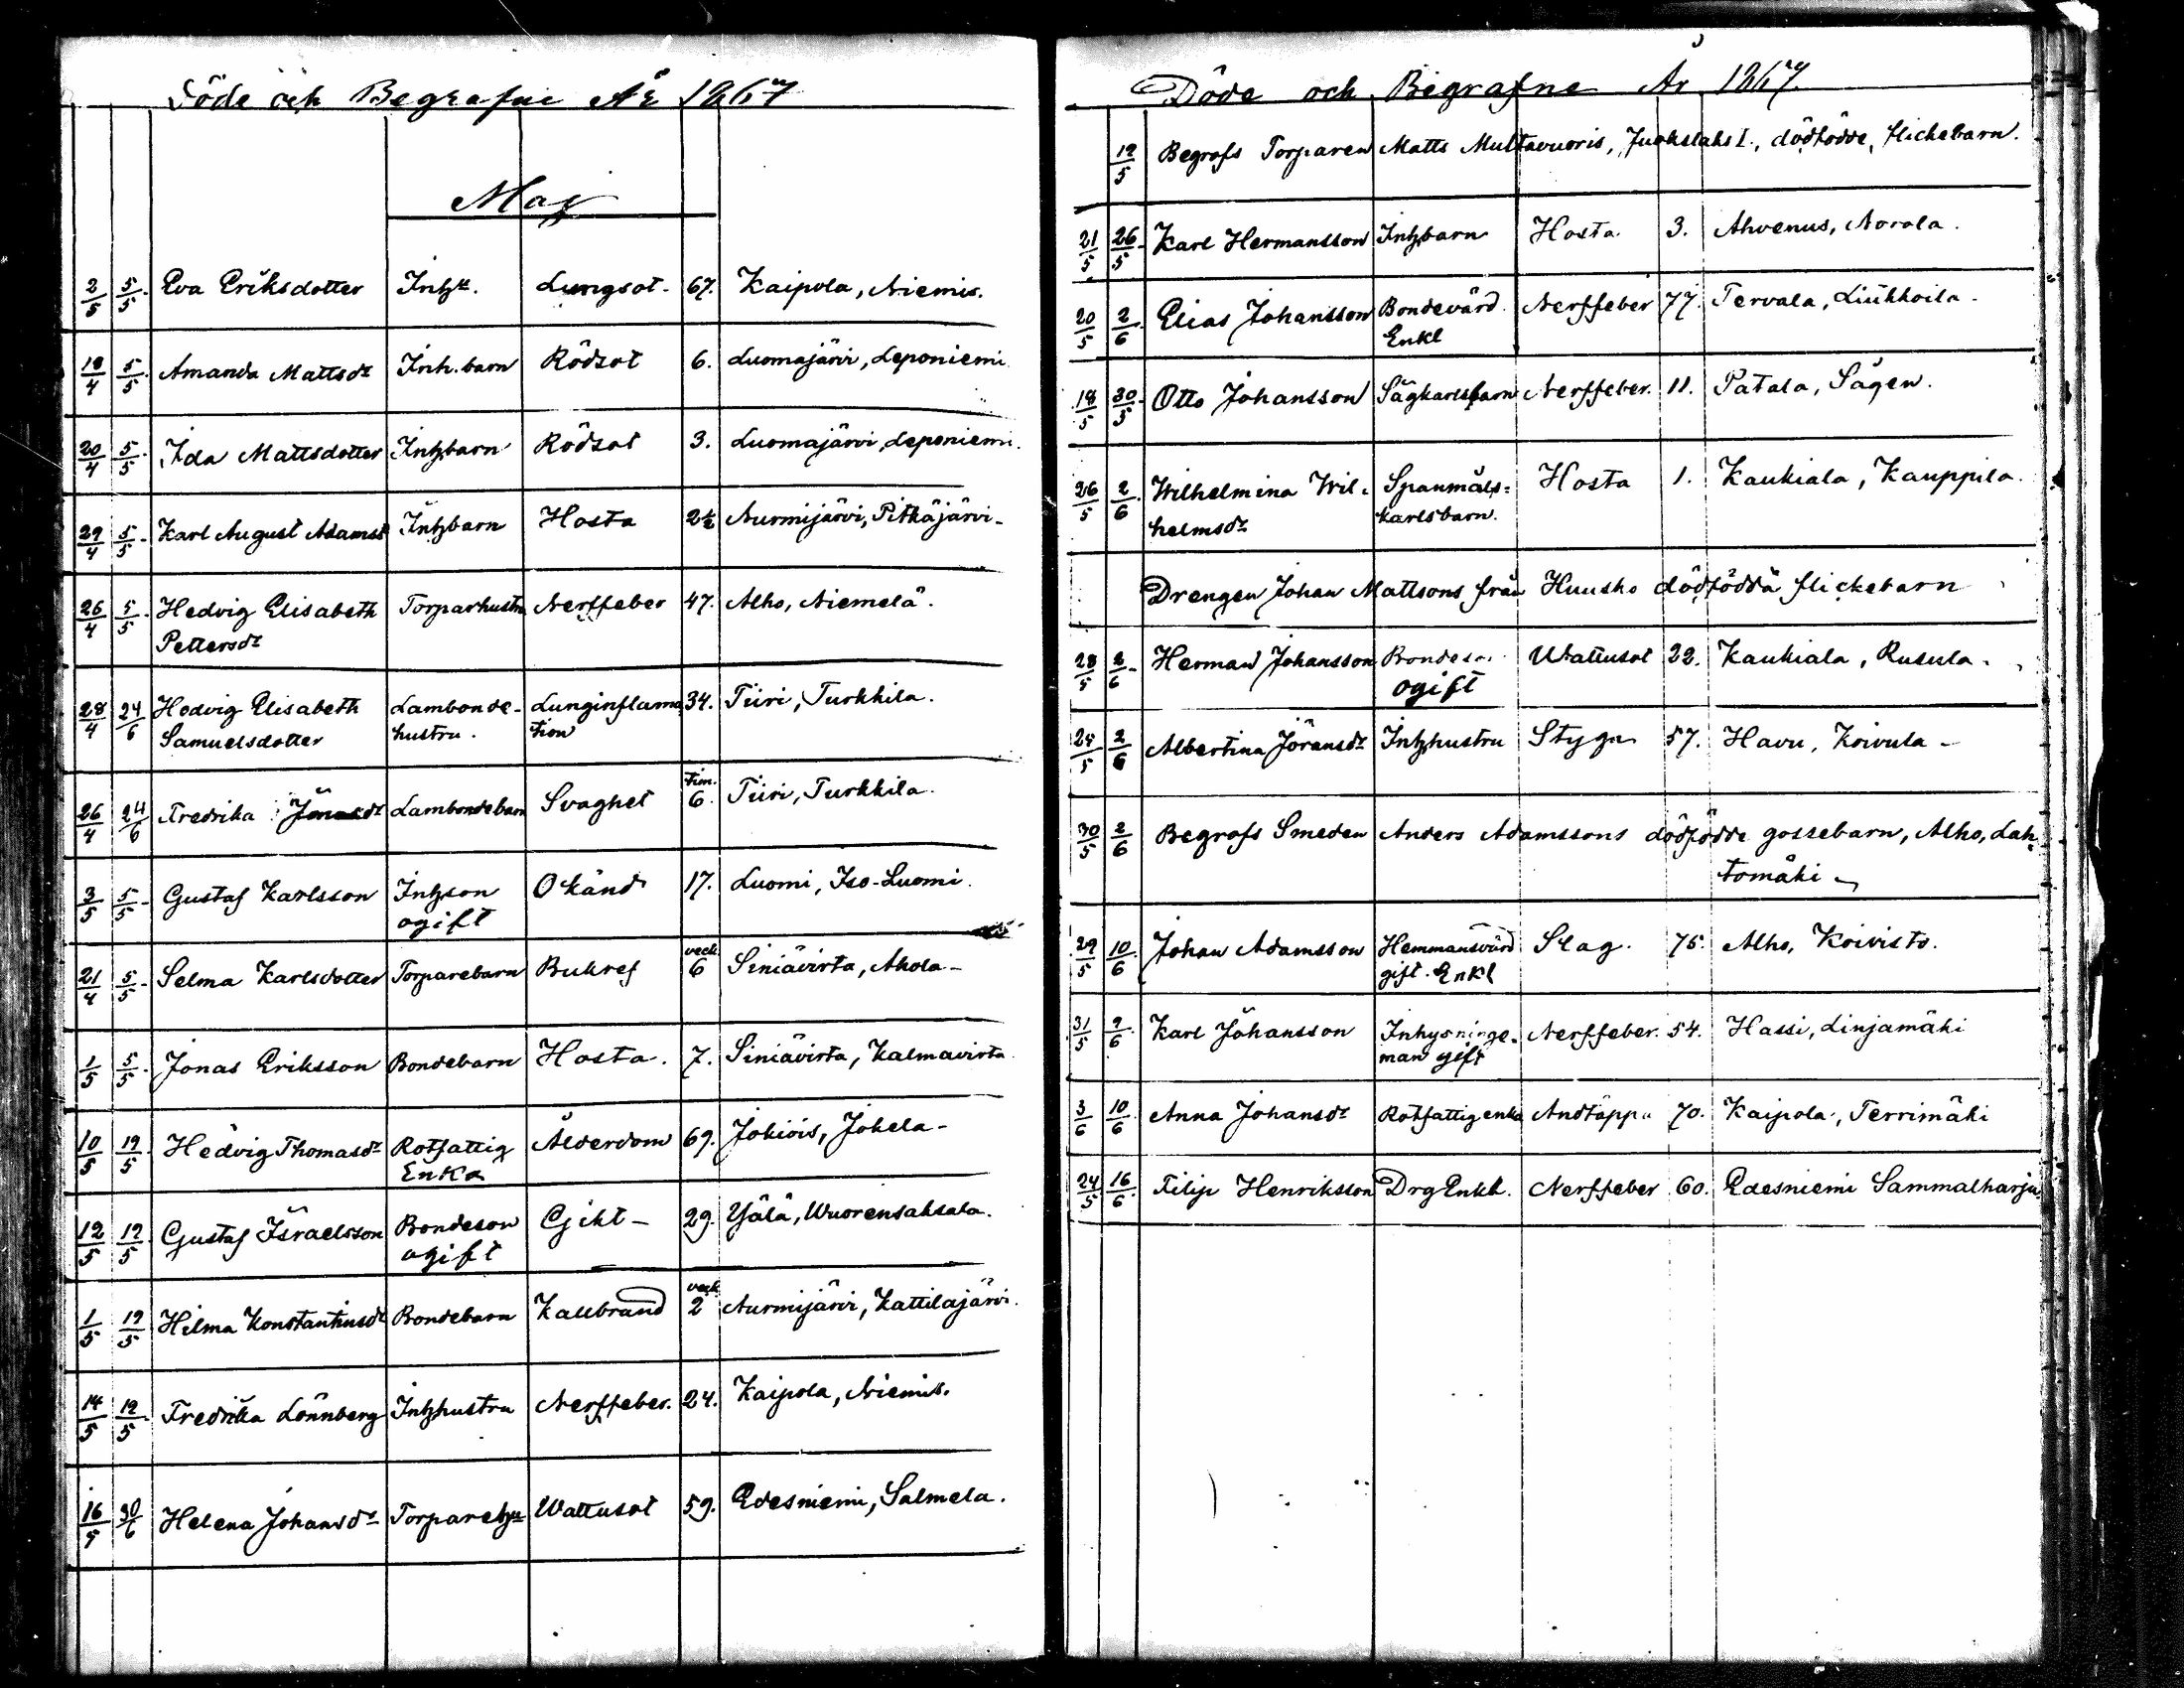 Döde och Begrafne År 1867
Maj
2/5 5/5 Eva Eriksdotter Inhu. Lungsot. 67. Kaipola, Niemis.
18/4 5/5 Amanda Mattsdr Inh.barn Rödsot 6. Luomajärvi, Leponiemi
20/4 5/5 Ida Mattsdotter Inhbarn Rödsot 3. Luomajärvi, Leponiemi.
29/4 5/5 Karl August Adamss Inhbarn Hosta 2½ Nurmijärvi, Pitkäjärvi-
26/4 5/5 Hedvig Elisabeth Torparhustru Nerffeber 47. Alho, Niemelä.
Pettersdr
28/4 24/6 Hedvig Elisabeth Lambonde- Lunginflama 34. Tiiri, Turkkila.
Samuelsdotter hustru. tion
tim.
26/4 24/6 Fredrika Jönasdr Lambondebarn Svaghet 6. Tiiri, Turkkila.
3/5 5/5 Gustaf Karlsson Inhson Okänd 17. Luomi, Iso-Luomi.
ogift
veck
21/4 5/5 Selma Karlsdotter Torparebarn Bukref 6 Siniävirta, Ahola-
1/5 5/5 Jonas Eriksson Bondebarn Hosta. 7. Siniävirta, Kalmavirta.
10/5 19/5 Hedvig Thomasdr Rotfattig Ålderdom 69. Jokiois, Jokela-
Enka
12/5 19/5 Gustaf Israelsson Bondeson Gikt- 29. Yälä, Wuorensaksala.
ogift
veck
1/5 19/5 Hilma Konstantinsdr Bondebarn Kallbrand 2 Nurmijärvi, Kattilajärvi.
14/5 19/5 Fredrika Lönnberg Inhhustru Nerffeber. 24. Kaipola, Niemis.
16/5 30/6 Helena Johansdr Torparehu Wattusot 59. Edesniemi, Salmela.
Döde och Begrafne År 1867.
19/5 Begrofs Torparen Matts Multavuoris, Juokslaks I., dödfödde, flickebarn.
21/5 26/5 Karl Hermansson Inhbarn Hosta. 3. Ahvenus, Norola.
20/5 2/6 Elias Johansson Bondevärd Nerffeber 77. Tervala, Liukkoila-
Enkl
18/5 30/5 Otto Johansson Sågkarlsbarn Nerffeber. 11. Patala, Sågen.
26/5 2/6 Wilhelmina Wil- Spanmåls- Hosta 1. Kaukiala, Kauppila.
helmsdr karlsbarn.
Drengen Johan Mattsons från Huusko dödföddä flickebarn
28/5 2/6 Herman Johansson Bondeson Wattusot 22. Kaukiala, Rusula.
ogift
25/5 2/6 Albertina Jöransdr Inhhustru Styga 57. Havu, Koivula-
30/5 2/6 Begrofs Smeden Anders Adamssons dödfödde gossebarn, Alho, Lah-
tomäki
29/5 10/6 Johan Adamsson Hemmansvärd Slag. 75. Alho, Koivisto.
gift. Enkl
31/5 9/6 Karl Johansson Inhysninge- Nerffeber. 54. Hassi, Linjamäki
man gift
3/6 10/6 Anna Johansdr Rotfattig enka Andtäppa 70. Kaipola, Terrimäki
24/5 16/6 Filip Henriksson Drg Enkl. Nerffeber 60. Edesniemi Sammalharju.